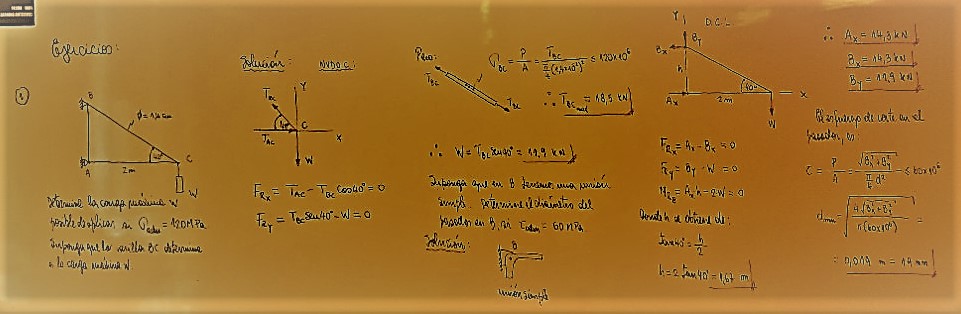 Ejercicios:
①
B
φ = 1,4 cm
40°
A
2m
C
W
Determine la carga máxima W
posible de aplicar si σadm = 120 MPa.
Suponga que la varilla BC determina
a la carga máxima W.
Solución:
NUDO C:
Y
TBC
40°
C
TAC
X
W
FRX = TAC - TBC Cos40° = 0
FRY = TBC Sen40° - W = 0
Pero:
TBC
TBC
σBC = P/A = TBC / (π/4 (1,4x10⁻²)²) ≤ 120x10⁶
∴ TBCmax = 18,5 kN
∴ W = TBC sen40° = 11,9 kN
Suponga que en B tenemos una unión
simple. Determine el diámetro del
pasador en B, si τadm = 60 MPa.
Solución:
B
unión simple
D.C.L.
Y
BX
BY
h
40°
AX
2m
X
W
FRX = AX - BX = 0
FRY = BY - W = 0
MRB = AX h - 2W = 0
Donde h se obtiene de:
h/2
h = 2 tan40° = 1,67 m
∴ AX = 14,3 kN
BX = 14,3 kN
BY = 11,9 kN
El esfuerzo de corte en el
pasador, es:
τ = P/A = √(BX² + BY²) / (π/4 d²) ≤ 60x10⁶
dmin = √(4√(BX² + BY²) / π(60x10⁶)) =
= 0,019 m = 19 mm